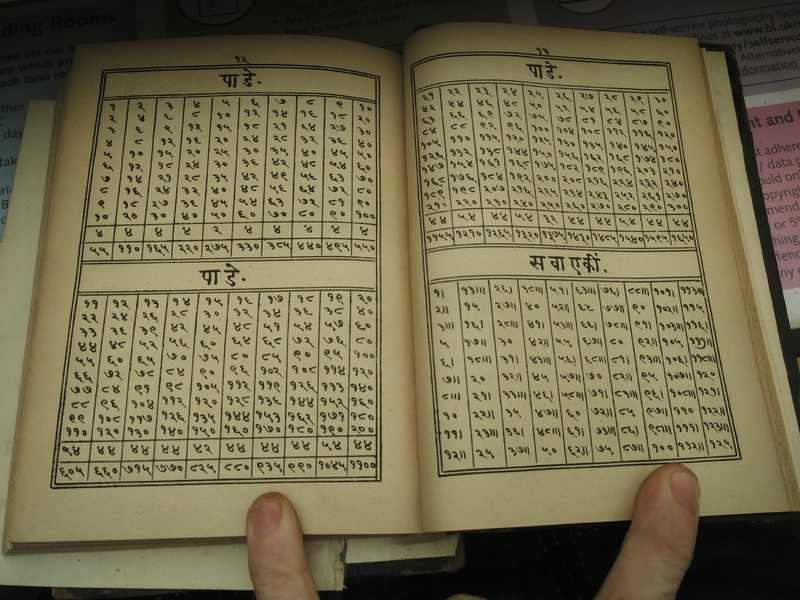 १२
पाडे.
१ २ ३ ४ ५ ६ ७ ८ ९ १०
२ ४ ६ ८ १० १२ १४ १६ १८ २०
३ ६ ९ १२ १५ १८ २१ २४ २७ ३०
४ ८ १२ १६ २० २४ २८ ३२ ३६ ४०
५ १० १५ २० २५ ३० ३५ ४० ४५ ५०
६ १२ १८ २४ ३० ३६ ४२ ४८ ५४ ६०
७ १४ २१ २८ ३५ ४२ ४९ ५६ ६३ ७०
८ १६ २४ ३२ ४० ४८ ५६ ६४ ७२ ८०
९ १८ २७ ३६ ४५ ५४ ६३ ७२ ८१ ९०
१० २० ३० ४० ५० ६० ७० ८० ९० १००
४ ४ ४ ४ २ ४ ४ ४ ४ ४
५५ ११० १६५ २२० २७५ ३३० ३८५ ४४० ४९५ ५५०
पाडे.
११ १२ १३ १४ १५ १६ १७ १८ १९ २०
२२ २४ २६ २८ ३० ३२ ३४ ३६ ३८ ४०
३३ ३६ ३९ ४२ ४५ ४८ ५१ ५४ ५७ ६०
४४ ४८ ५२ ५६ ६० ६४ ६८ ७२ ७६ ८०
५५ ६० ६५ ७० ७५ ८० ८५ ९० ९५ १००
६६ ७२ ७८ ८४ ९० ९६ १०२ १०८ ११४ १२०
७७ ८४ ९१ ९८ १०५ ११२ ११९ १२६ १३३ १४०
८८ ९६ १०४ ११२ १२० १२८ १३६ १४४ १५२ १६०
९९ १०८ ११७ १२६ १३५ १४४ १५३ १६२ १७१ १८०
११० १२० १३० १४० १५० १६० १७० १८० १९० २००
९४ ४४ ४४ ४४ ४२ ४४ ४४ ४४ ५४ ४४
६०५ ६६० ७१५ ७७० ८२५ ८८० ९३५ ९९० १०४५ ११००
१३
पाडे.
२१ २२ २३ २४ २५ २६ २७ २८ २९ ३०
४२ ४४ ४६ ४८ ५० ५२ ५४ ५६ ५८ ६०
६३ ६६ ६९ ७२ ७५ ७८ ८१ ८४ ८७ ९०
८४ ८८ ९२ ९६ १०० १०४ १०८ ११२ ११६ १२०
१०५ ११० ११५ १२० १२५ १३० १३५ १४० १४५ १५०
१२६ १३२ १३८ १४४ १५० १५६ १६२ १६८ १७४ १८०
१४७ १५४ १६१ १६८ १७५ १८२ १८९ १९६ २०३ २१०
१६८ १७६ १८४ १९२ २०० २०८ २१६ २२४ २३२ २४०
१८९ १९८ २०७ २१६ २२५ २३४ २४३ २५२ २६१ २७०
२१० २२० २३० २४० २५० २६० २७० २८० २९० ३००
४४ ५४ ४४ ५४ २२ ४४ ४४ ५४ ४४ ४४
११५५ १२१० १२६५ १३२० १३७५ १४३० १४८५ १५४० १५९५ १६५०
सवाएकीं.
१। १३॥। २६। ३८॥। ५१। ६३॥। ७६। ८८॥। १०१। ११३॥।
२॥ १५ २७॥ ४० ५२॥ ६५ ७७॥ ९० १०२॥ ११५
३॥। १६। २८॥। ४१। ५३॥। ६६। ७८॥। ९१। १०३॥। ११६।
५ १७॥ ३० ४२॥ ५५ ६७॥ ८० ९२॥ १०५ ११७॥
६। १८॥। ३१। ४३॥। ५६। ६८॥। ८१। ९३॥। १०६। ११८॥।
७॥ २० ३२॥ ४५ ५७॥ ७० ८२॥ ९५ १०७॥ १२०
८॥। २१। ३३॥। ४६। ५८॥। ७१। ८३॥। ९६। १०८॥। १२१।
१० २२॥ ३५ ४७॥ ६० ७२॥ ८५ ९७॥ ११० १२२॥
११। २३॥। ३६। ४८॥। ६१। ७३॥। ८६। ९८॥। १११। १२३॥।
१२॥ २५ ३७॥ ५० ६२॥ ७५ ८७॥ १०० ११२॥ १२५